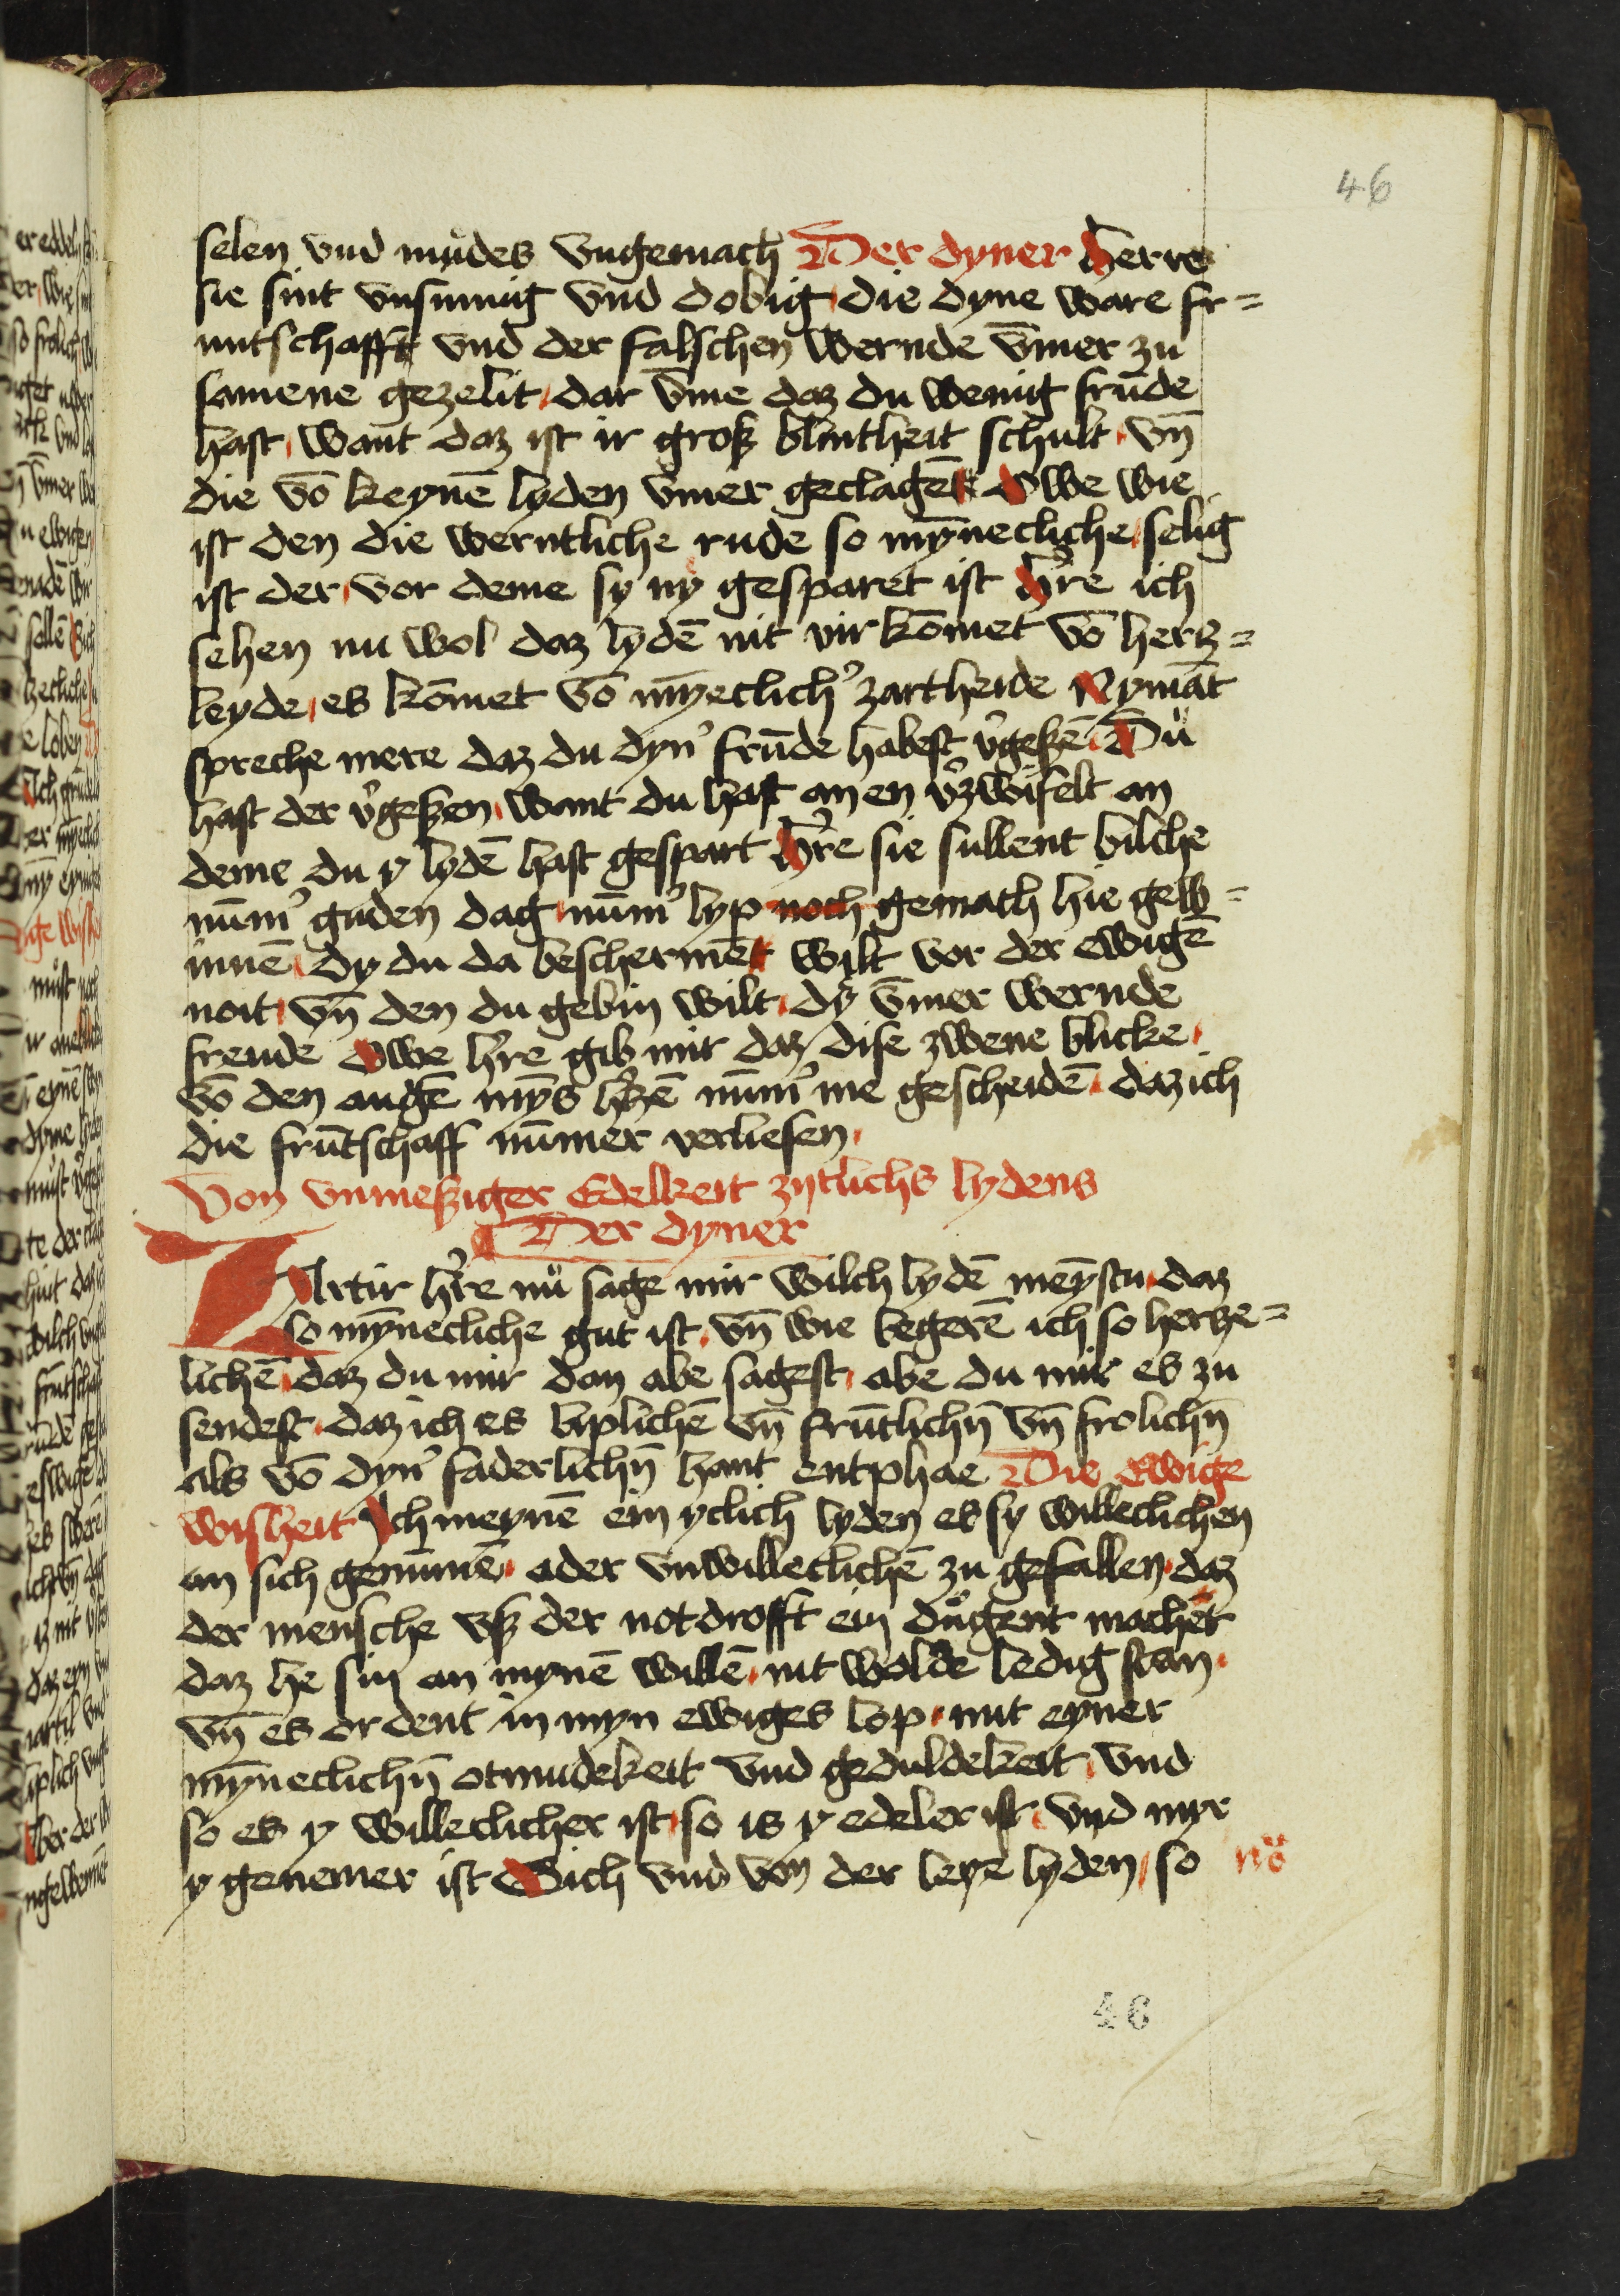 46
selen vnd mudes vngemach Der dyner Herre
sie sint vnsinnig vnd dobig die dyne ware fr=
untschafft vnd der falschen wernde v̄mer zu
samene gezelit dar v̄me daz du wenig frūde
hast want daz ist ir groß blintheit schult vn̄
die vō keynē lyden v̄mer geclagēt Owe wie
ist den die werntliche rude so mȳnecliche selig
ist der vor deme sy ny gesparet ist H're ich
sehen nu wol daz lydē nit vir kōmet vō hertz=
leyde es kōmet vō mȳeclich' zartheide Nymāt
spreche mere daz du dyn' frūde habest v'geßē Du
hast der v'geßen want du hast an en v'zwifelt an
deme du y lydē hast gespart H're sie sullent bilche
nūm' guden dag nūm' lyp noch gemach hie gew=
innē dy du da beschermēt wilt vor der ewigē
noit vn̄ den du gebin wilt dy v̄mer wernde
freude Owe h're gib mir daz dise zwene blicke
vō den augē mȳs h'tzē nūm' me gescheidē daz ich
die frūtschaff nūmer verliesen
Von vnmeßiger Edelkeit zytlichs lydens
Der dyner
ZArtir h're nu sage mir wilch lydē meȳstu daz
so mȳnecliche gut ist vn̄ wie begerē ich so hertze=
lichē daz du mir dan abe sagest abe du mir es zu
sendest daz ich es liplichē vn̄ frūtlichn̄ vn̄ frolichn̄
als vō dyn' faderlichn̄ hant entphae Die Ewige
wisheit Ich meynē ein yclich lyden es sy willeclichen
an sich genūmē ader vnwilleclichē zu gefallen daz
der mensche vß der notdrofft ein dugent machet
daz he sin an mynē willē nit wolde ledig stan
vn̄ es ordent in myn ewiges lop mit eyner
mȳneclichn̄ otmudekeit vnd geduldekeit vnd
so es y willeclicher ist so is y edeler ist vnd myr
y genemer ist Sich vnd von der leye lyden so
46